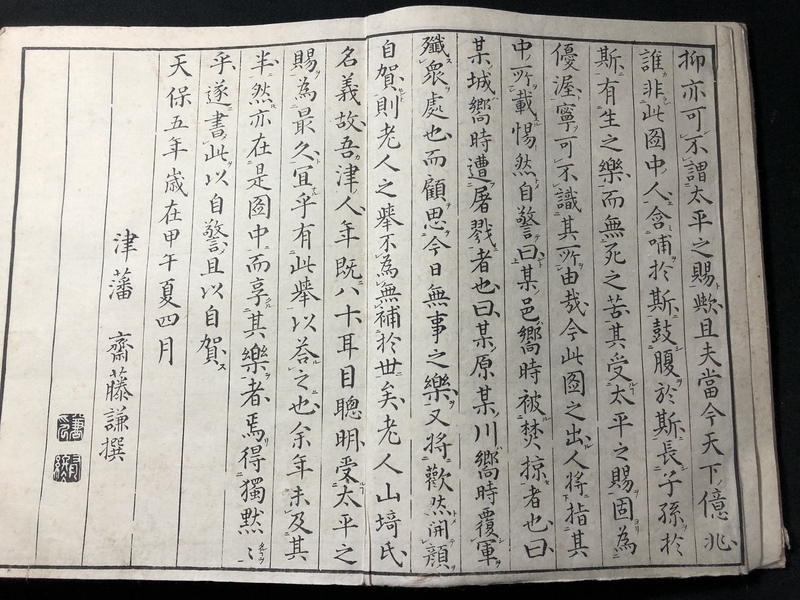 抑亦可不謂太平之賜歟且夫當今天下億兆
誰非此圖中人含哺於斯鼓腹於斯長子孫於
斯有生之樂而無死之苦其受太平之賜固為
優渥寧可不識其所由哉今此圖之出人將指其
中所載惕然自警曰某邑嚮時被焚掠者也曰
某城嚮時遭屠戮者也曰某原某川嚮時覆軍
殲衆處也而顧思今日無事之樂又將歡然開顔
自賀則老人之舉不為無補於世矣老人山﨑氏
名義故吾津人年既八十耳目聰明受太平之
賜為最久宜乎有此舉以荅之也余年未及其
半然亦在是圖中而享其樂者焉得獨默〻
乎遂書此以自警且以自賀
天保五年歳在甲午夏四月
津藩 齋藤謙撰